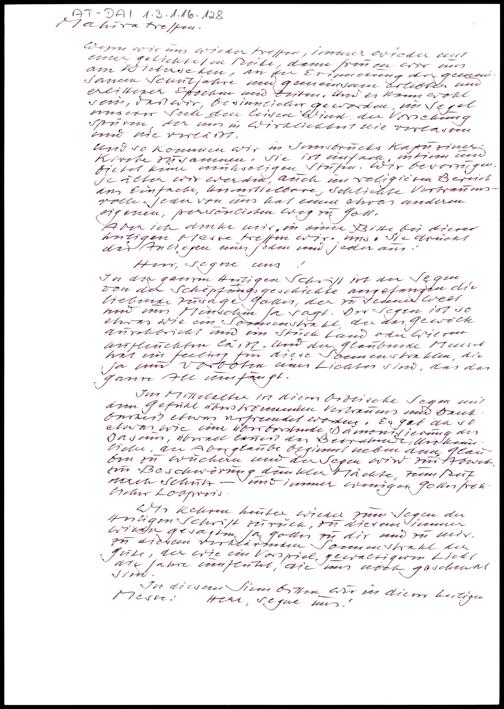 AT-DAI 1.3.1.16-128
Maturatreffen.
Wenn wir uns wieder treffen, immer wieder und
einer gelichteten Reihe, dann freuen wir uns
am Wiedersehen, an der Erinnerung der gemein-
samen Schuljahre und gemeinsam erlebter und
erlittener Epochen und Zeiten. Und es kann wohl
sein, daß wir, besinnlicher geworden, im Segel
unserer Seele den leisen Wind der Vorsehung
spüren, der uns in Wirklichkeit nie verlassen
und nie verläßt.
Und so kommen wir in Innsbrucks Kapuziner-
Kirche zusammen. Sie ist einfach, intim und
bietet keine Stufen. Wir bevorzugen,
je älter wir werden, auch im religiösen Bereich
das Einfache, schlichte Vertrauens-
volle. Jeder von uns hat einen etwas anderen
eigenen, persönlichen Weg zu Gott.
Aber ich denke mir, in einer Bitte bei dieser
heiligen Messe treffen wir uns. Sie drückt
das Anliegen eines jeden und jeder aus:
Herr, segne uns!
In der ganzen Heiligen Schrift ist der Segen
von der Schöpfungsgeschichte angefangen die
liebende Zusage Gottes, der zu seiner Welt
und uns Menschen ja sagt. Der Segen ist so
etwas wie ein Sonnenstrahl, der das Gewölk
durchbricht und ein Stück Land oder Wiesen
aufleuchten läßt. Und der glaubende Mensch
hat ein feeling für diese Sonnenstrahlen, die
ja nur Vorboten eines Lichtes sind, das das
ganze All umfängt.
Im Mittelalter ist dieser biblische Segen mit
dem Gefühl überströmenden Vertrauens und Dank-
barkeit etwas verfremdet worden. Es gab da so
etwas wie eine Dämonisierung des
Daseins, überall lauert das Bedrohende,
liche, der Aberglaube beginnt neben dem Glau-
ben zu wuchern und der Segen wird zur Abwehr,
zur Beschwörung dunkler Mächte, zum Ruf
nach Schutz – und immer weniger
licher Lobpreis.
Wir kehren heute wieder zum Segen der
Heiligen Schrift zurück, zu diesem immer
wieder gesagten Ja Gottes zu dir und zu mir,
zu diesem Sonnenstrahl der
Güte, der wie ein Vorspiel gewaltigeren Lichts
die Jahre umfängt, die uns noch geschenkt
sind.
In diesem Sinn bitten wir in dieser heiligen
Messe: Herr, segne uns!